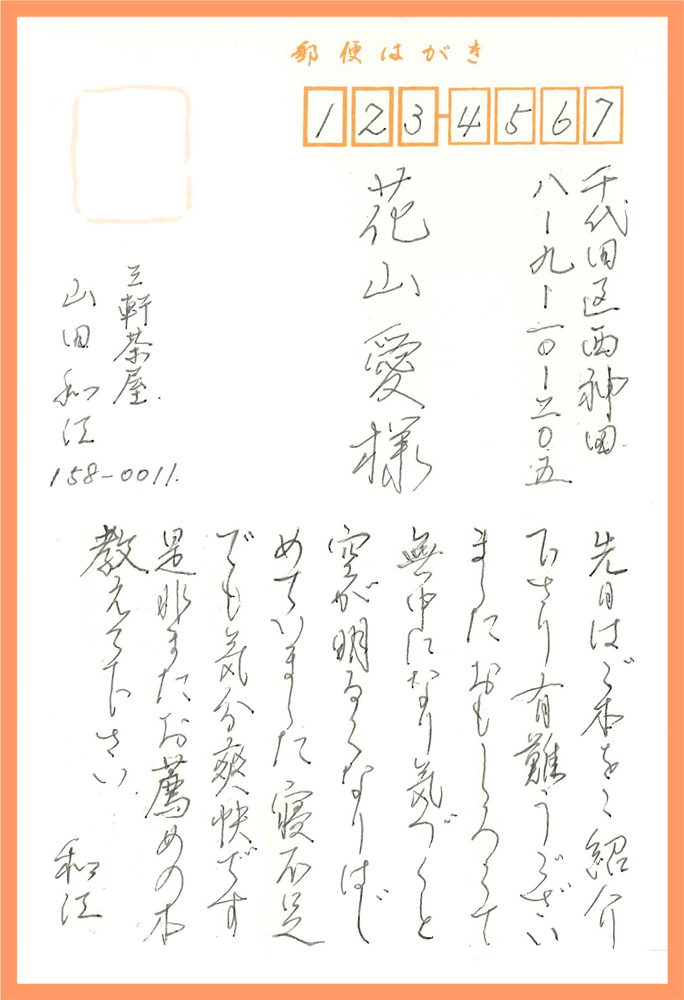 郵便はがき
123-4567
千代田区西神田
八ー九ー一〇ー二〇五
花山愛様
三軒茶屋
山田和江
158-0011.
先日はご本をご紹介
下さり有難うござい
ました おもしろくて
無中になり気づくと
空が明るくなりはじ
めていました 寝不足
でも気分爽快です
是非またお薦めの本
教えて下さい
和江